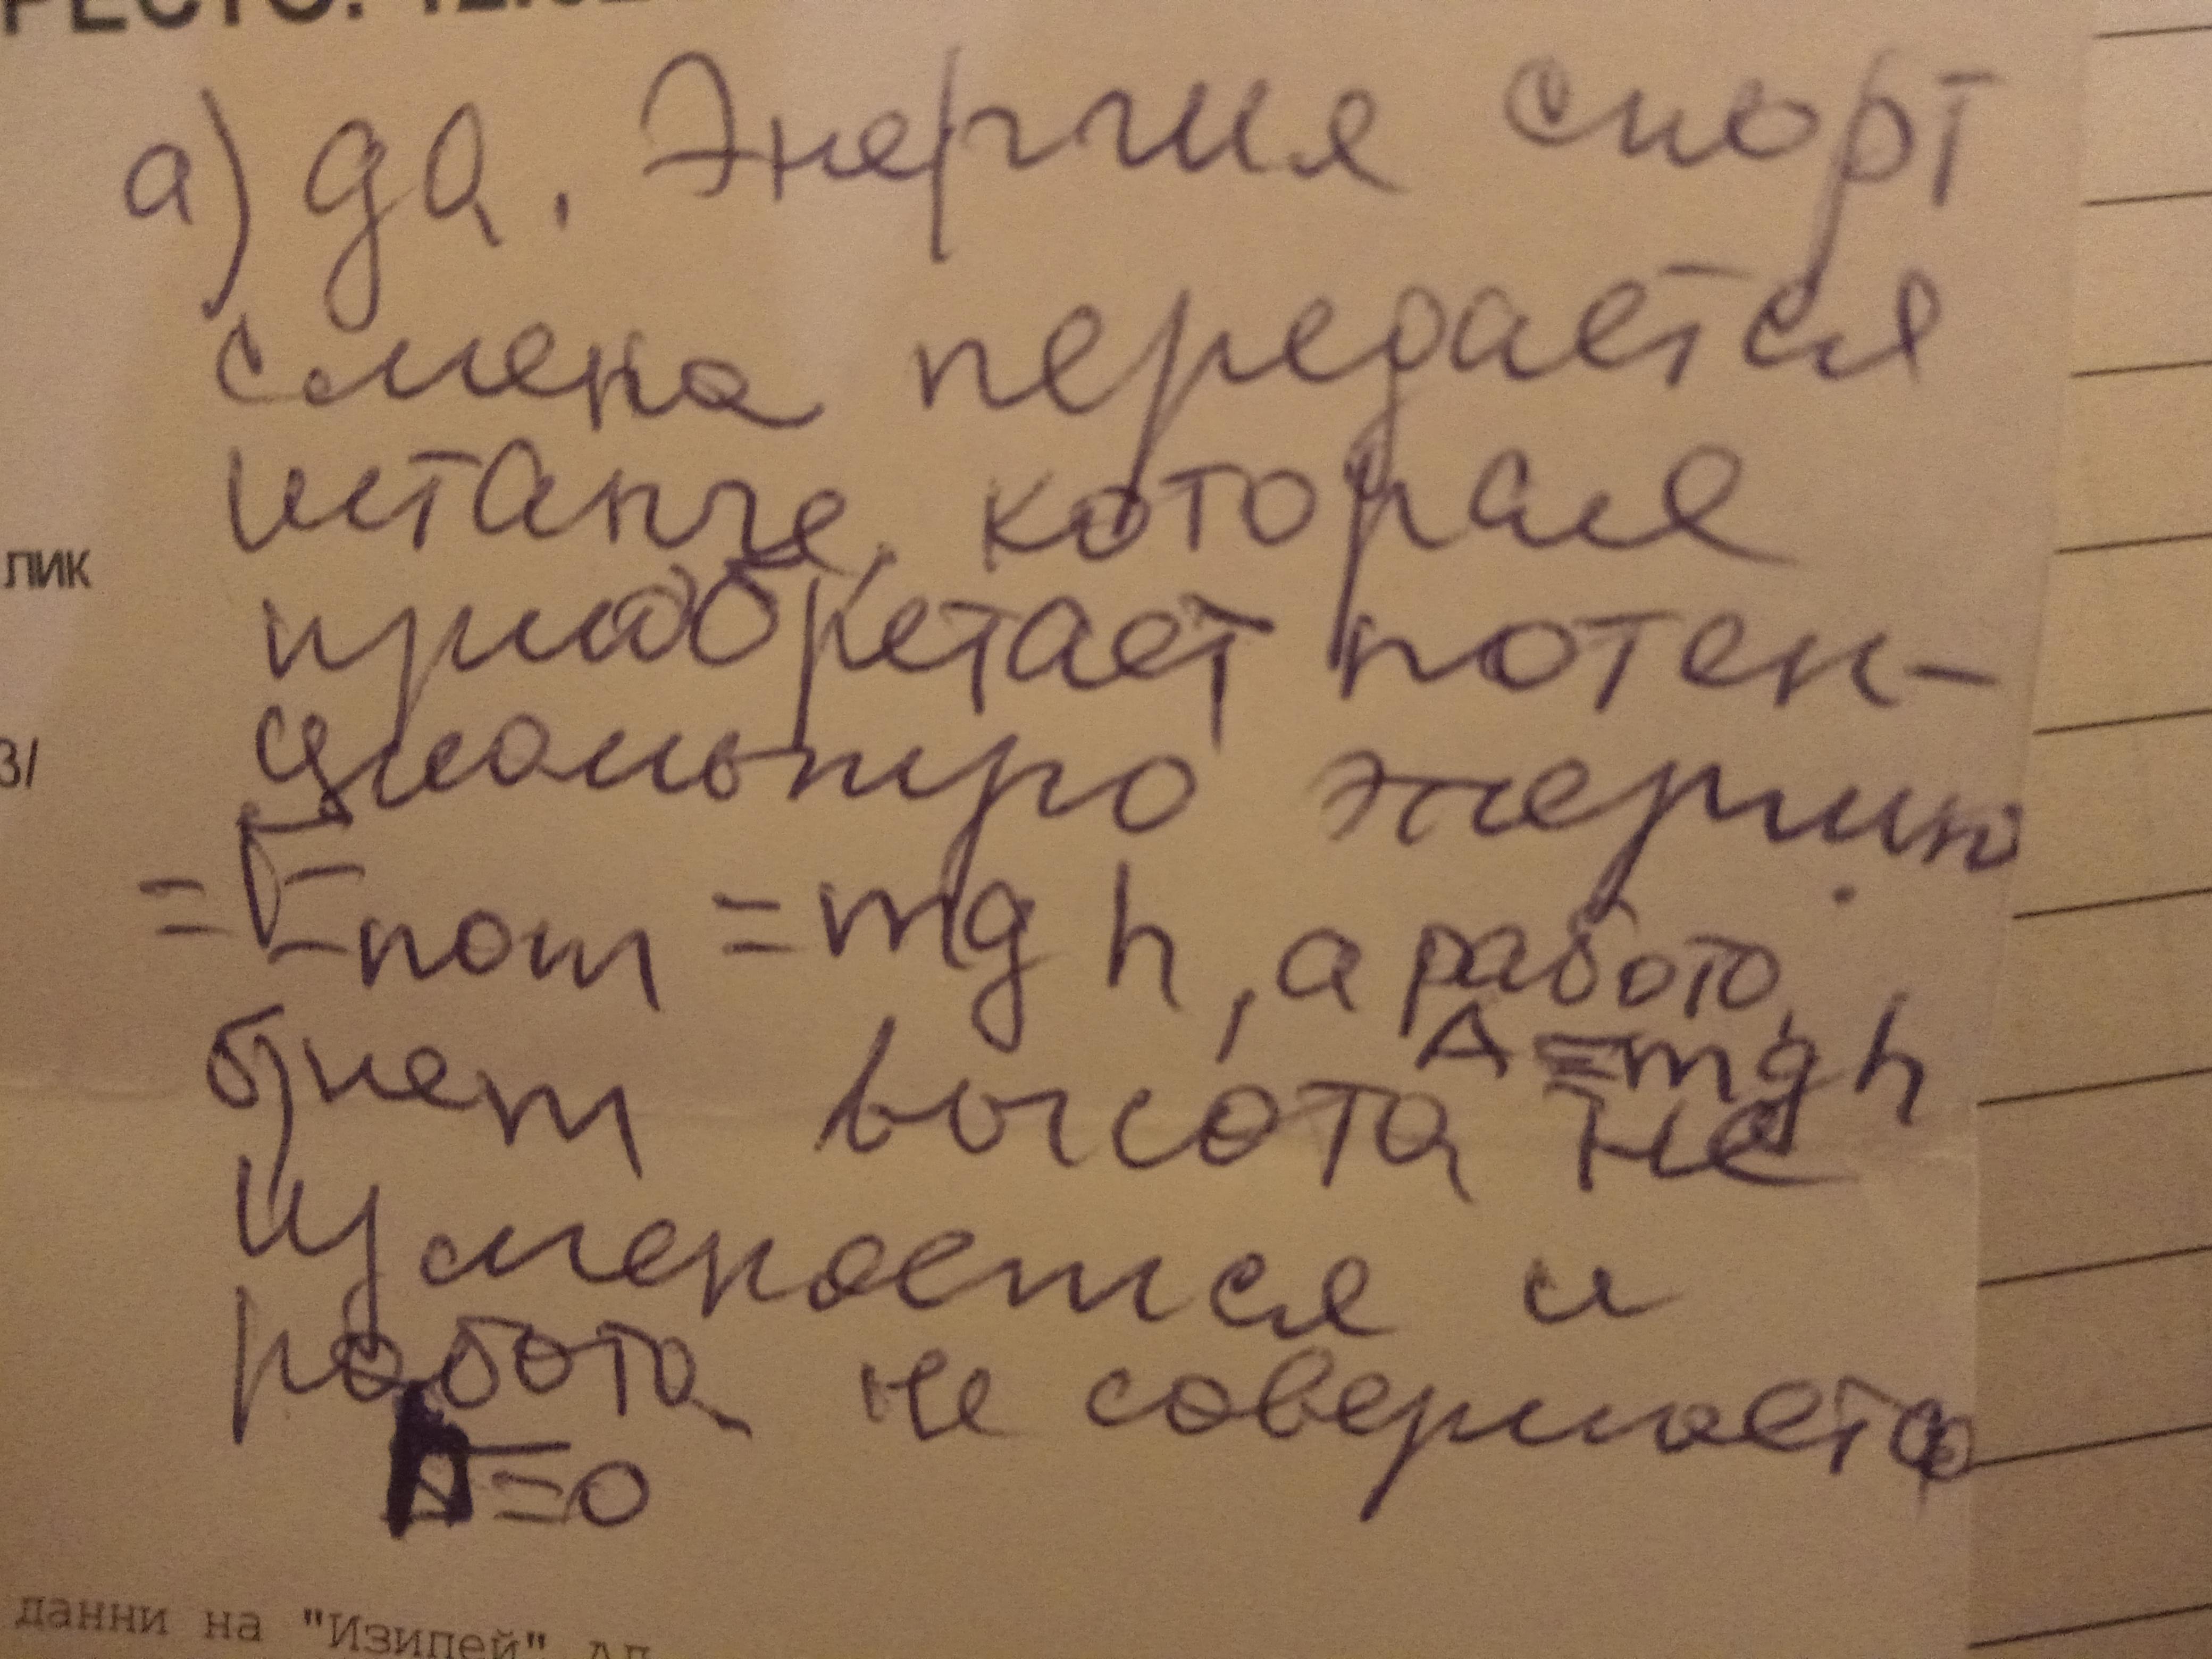 а) да. Энергия спорт
смена передается
штанге, которая
приобретает потен-
циальную энергию
=Eпот = mgh, а работа
A = mgh
б) нет высота не
изменяется и
работа не совершается
A=0
лик
3/
данни на "Изипей" АД